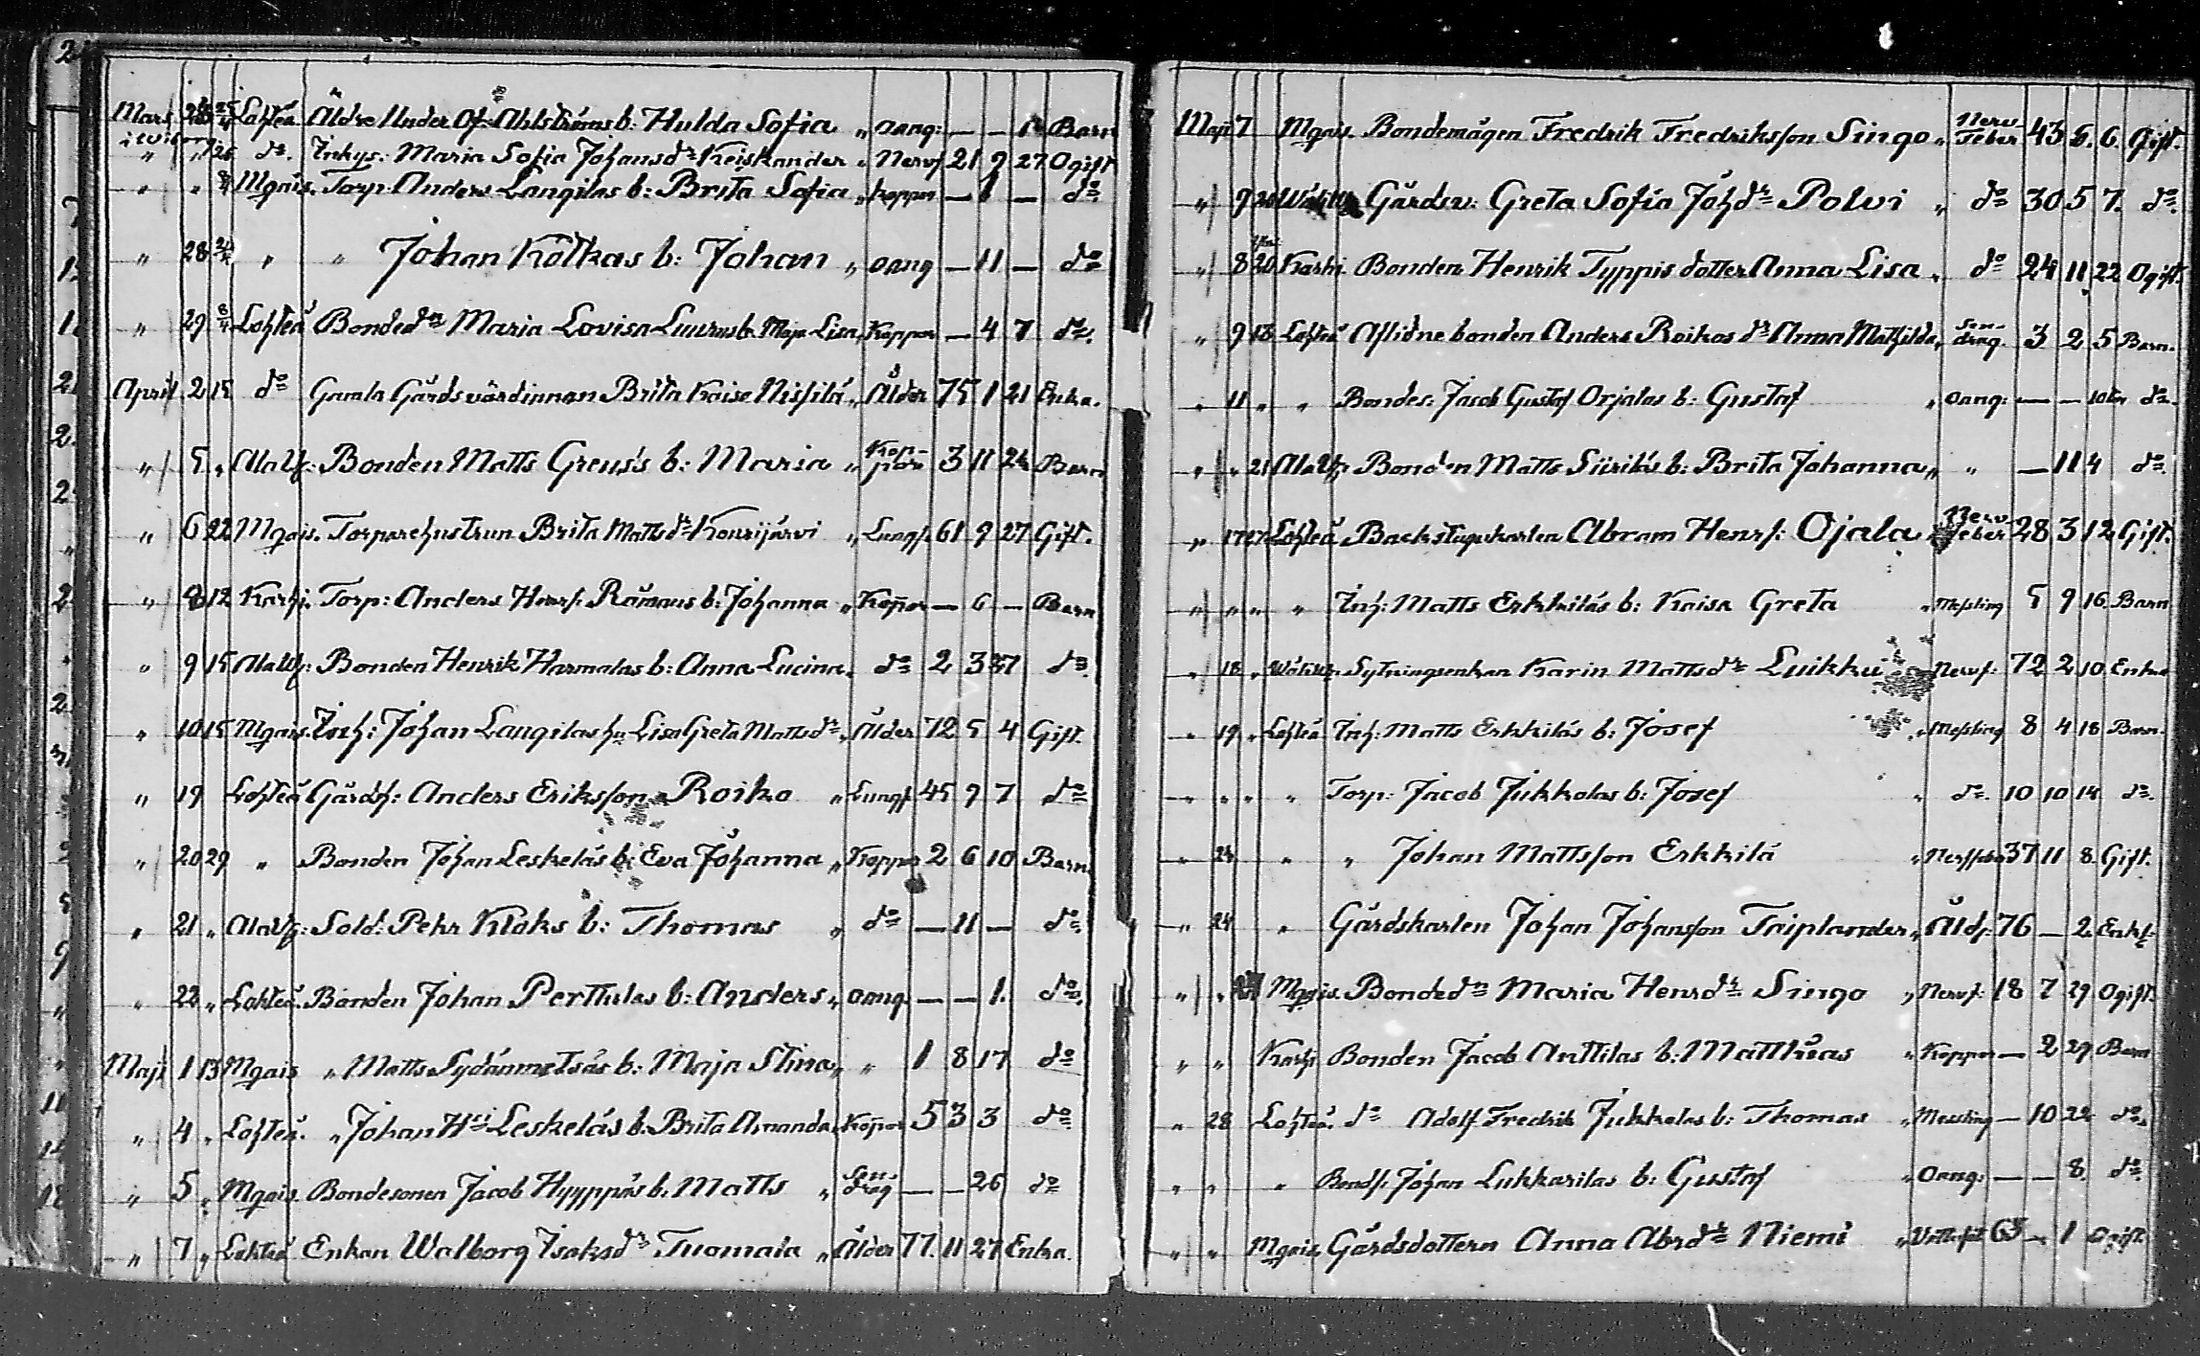 Mars 26 25/4 Lohteå Äldre Under Of: Ahlströms b: Hulda Sofia " oang: — — 1 Barn
" " 26 do. Inhys: Maria Sofia Johansdr Keiskander " Nervf 21 9 27 Ogift
" " Mgais. Torp. Anders Langilas b: Brita Sofia " Koppor — 1 — do.
" 28 " " Johan Kotkas b: Johan " oang — 11 — do
" 29 Lohteå Bondedn Maria Lovisa Luurus b. Maja Lisa " Koppor — 4 7 do.
April 2 15 do Gamla Gårdsvärdinnan Brita Kaisa Nissilä " Ålder 75 1 21 Enka.
" 5 " Alavf: Bonden Matts Greus's b: Maria " 3 11 24 Barn
" 6 22 Mgais. Torparehustrun Brita Mattsdr Kourijärvi " Lungs. 61 9 27 Gift.
" 8 12 Karhi. Torp: Anders Henrs: Rämäus b: Johanna " Koppor — 6 — Barn
" 9 15 Alavf: Bonden Henrik Harmalas b: Anna Lucina " do 2 3 27 do.
" 10 15 Mgais. Inh: Johan Langilas hu Lisa Greta Mattsdr " Ålder 72 5 4 Gift.
" 19 Lohteå Gårdsf: Anders Eriksson Roiko " Lungf 45 9 7 do
" 20 29 " Bonden Johan Leskeläs b: Eva Johanna " Koppor 2 6 10 Barn
" 21 " Alavf: Sold: Pehr Kloks b: Thomas " do — 11 — do
" 22 " Lohteå. Bonden Johan Perttulas b: Anders " oang. — — 1. do.
Maji 1 13 Mgais " Matts Sydänmetsäs b: Maja Stina " " 1 8 17 do
" 4 " Lohteå. " Johan Hri Leskeläs b. Brita Amanda " Koppor 5 3 3 do
" 5 " Mgais. Bondesonen Jacob Hyyppäs b. Matts " Sendrag — — 26 do
" 7 " Lohteå Enkan Walborg Isaksdr Tuomala " Ålder 77. 11 27 Enka.
Maji 7 Mgais. Bondemågen Fredrik Fredriksson Singo " Nerv-feber 43 5. 6. Gift.
" 9 20 Gårdsv: Greta Sofia Johdr Polvi " do 30 5 7. do.
" 8 20 Karhi Bonden Henrik Typpis dotter Anna Lisa " do 24 11 22 Ogift.
" 9 13 Lohteå Aflidne bonden Anders Roikos dr Anna Mathilda " Sen-drag. 3 2 5 Barn.
" 11 " " Bondes: Jacob Gustaf Orjalas b: Gustaf " oang: — — 10 do.
" " 21 Alavf: Bonden Matts Siiriläs b: Brita Johanna " " — 11 4 do.
" 17 27 Lohteå Backstugukarlen Abram Henrs: Ojala " Nerv-feber 28 3 12 Gift.
" " " " Inh: Matts Erkkiläs b: Kaisa Greta " Messling 5 9 16. Barn
" 18 " Sytningsenkan Karin Mattsdr Luikku " Nervf: 72 2 10. Enka
" 19 " Lohteå Inh: Matts Erkkiläs b: Josef " Messling 8 4 18 Barn.
" " " " Torp: Jacob Jukkolas b: Josef " do. 10 10 14 do.
" 24 " " Johan Mattsson Erkkilä " 37 11 8. Gift.
" 24 " Gårdskarlen Johan Johansson Taiplander " Åld: 76 — 2. Enkl:
" " Mgais. Bondedn Maria Henrdr Singo " Nervf: 18 7 29 Ogift.
" " Karhi Bonden Jacob Anttilas b: Matthias " Koppor — 2 29 Barn
" 28 Lohteå. do Adolf Fredrik Jukkolas b: Thomas " Messling — 10 22 do.
" " " Bondf: Johan Lukkarilas b: Gustaf " Oang: — — 8. do.
" " Mgais. Gårdsdottern Anna Abrdr Niemi " 63 — 1 Ogift